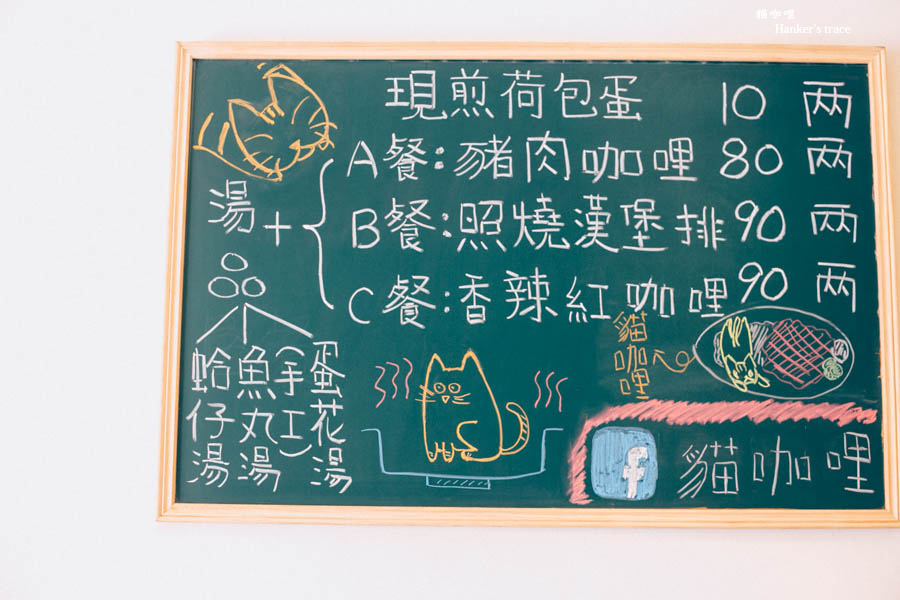 貓咖哩
Hanker's trace
現煎荷包蛋 10 两
A餐:豬肉咖哩 80 两
B餐:照燒漢堡排 90 两
C餐:香辣紅咖哩 90 两
湯+
蛤仔湯
魚丸湯
(手工)
蛋花湯
貓咖哩
f 貓咖哩